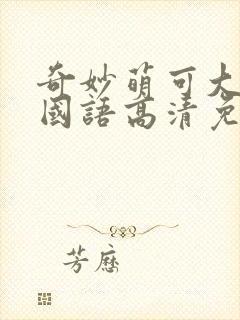 奇妙萌可大
國語高清免
芳歷